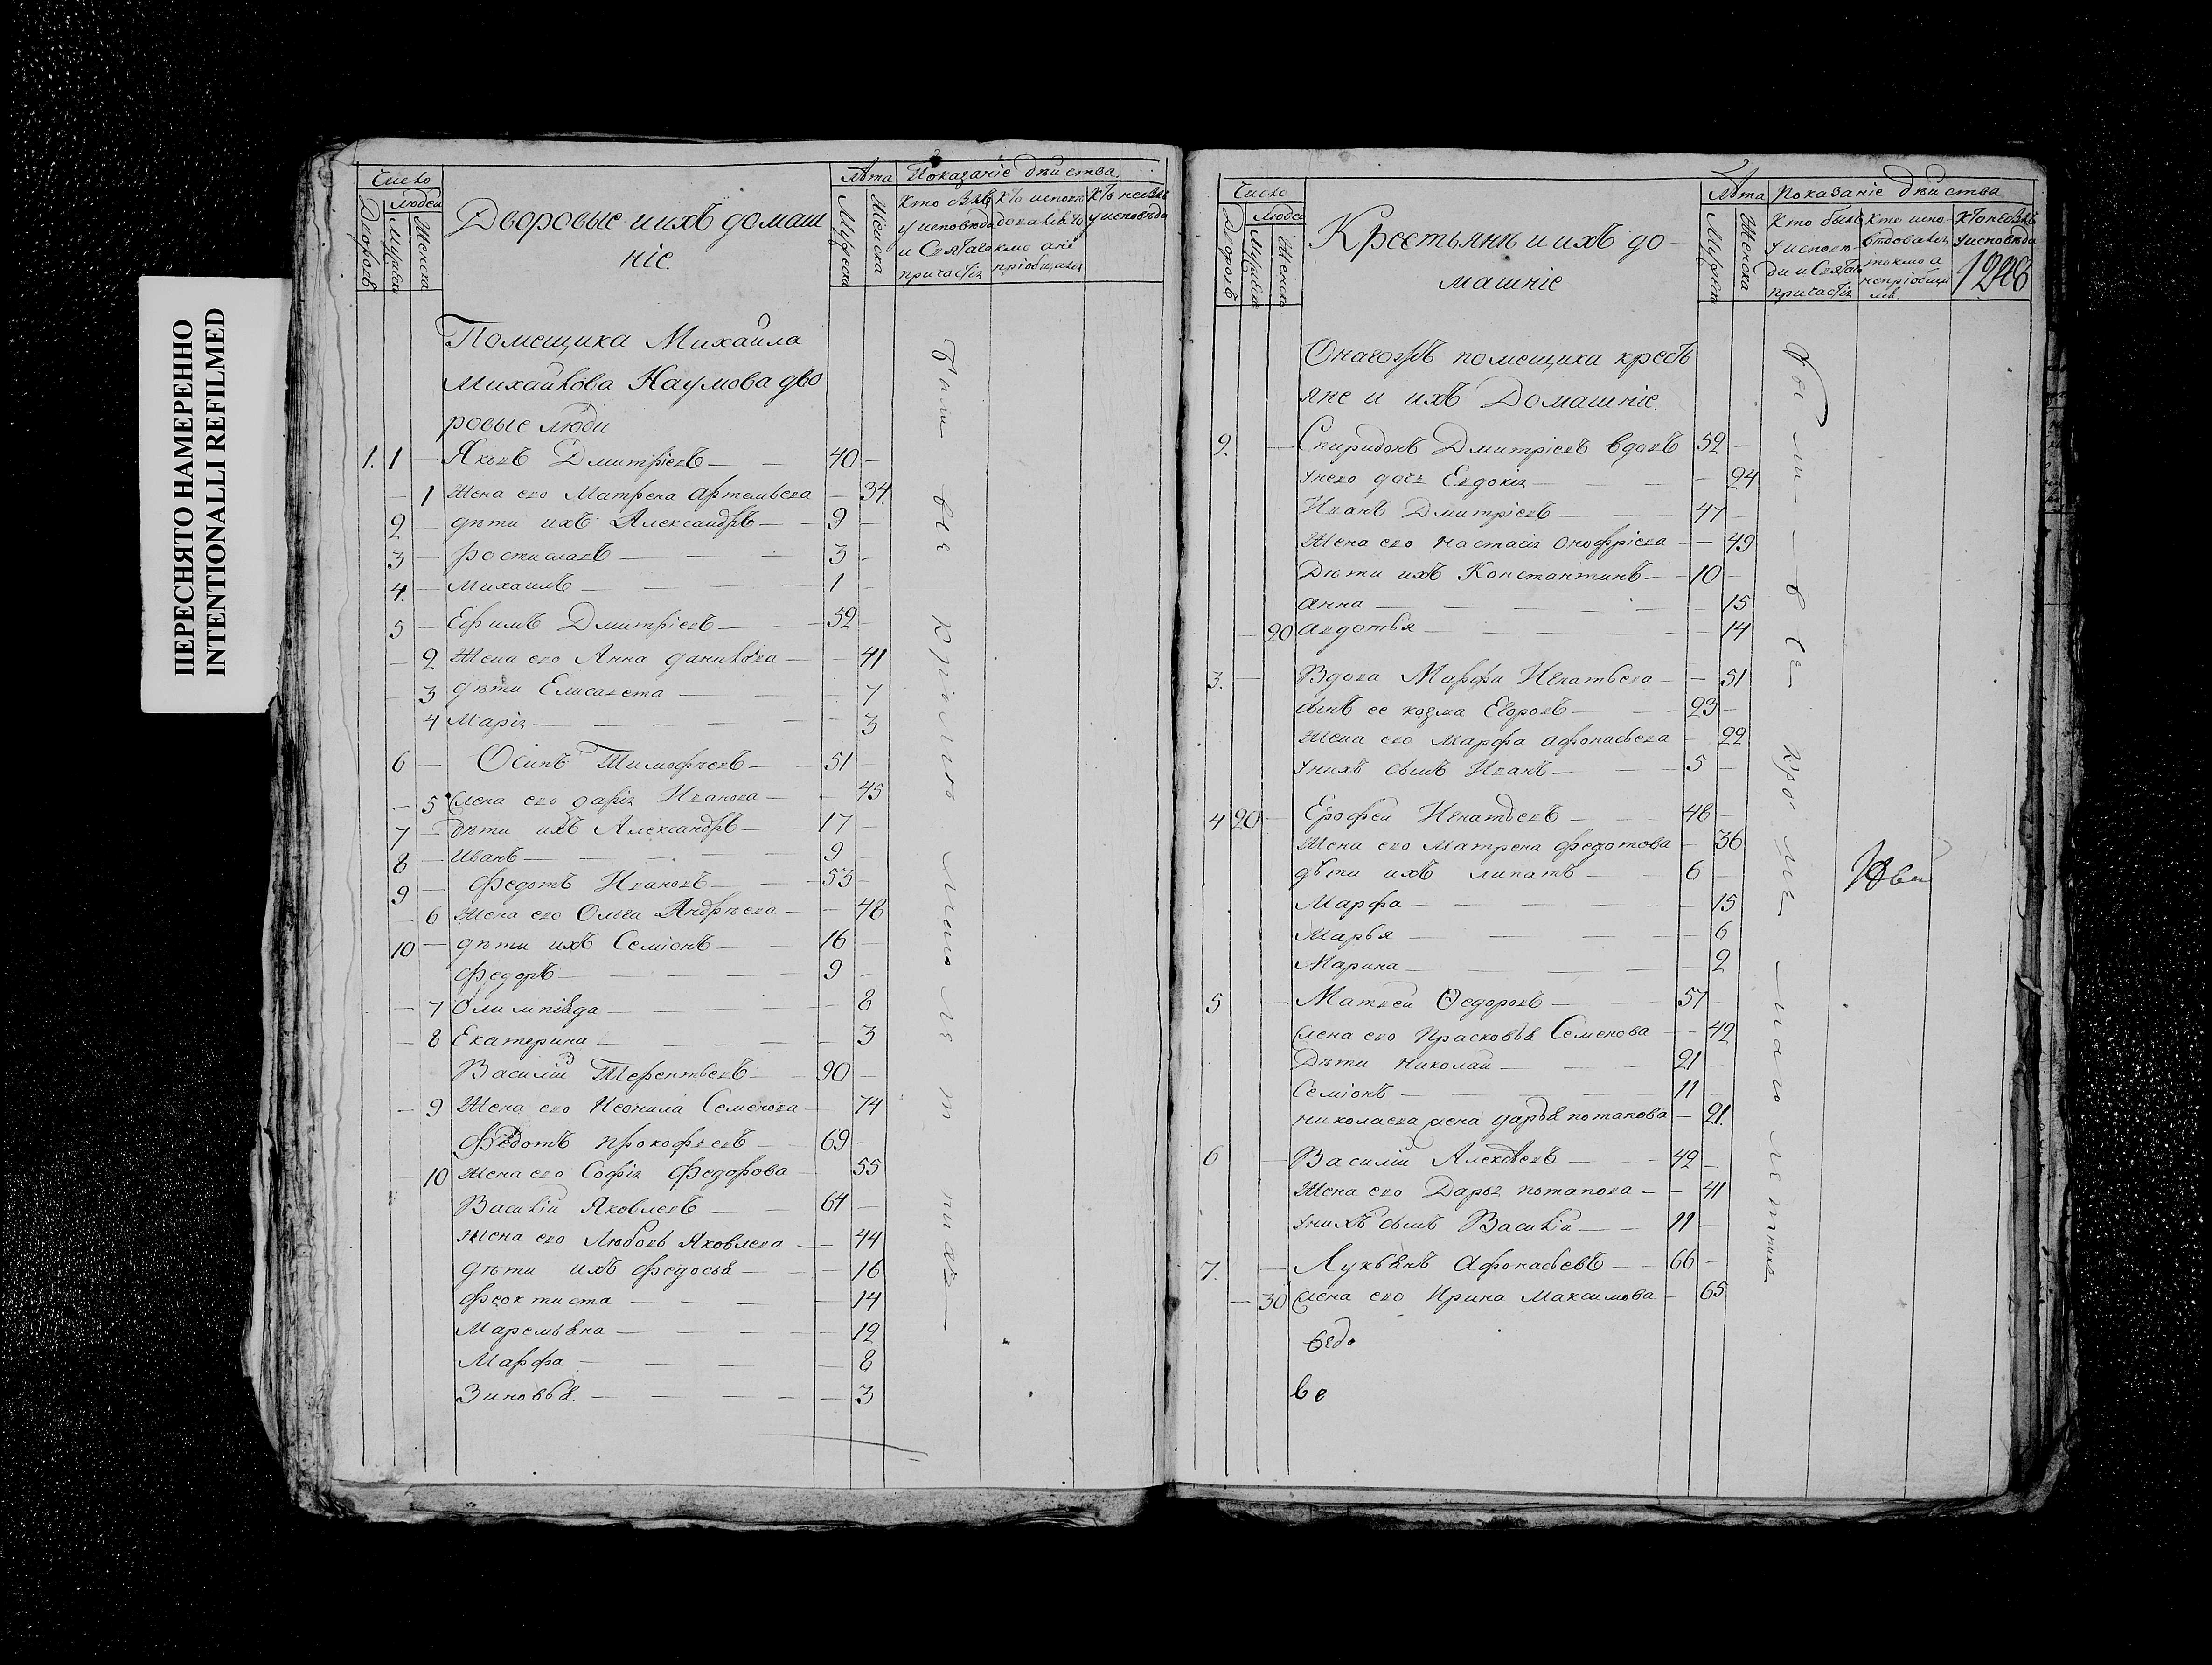 ПЕРЕСНЯТО НАМЕРЕННО
INTENTIONALLI REFILMED
Число
Людей
Дворовъ
Мужеска
Женска
Дворовые и ихъ домаш
ніе.
Лѣта
Мужеска
Женска
Показаніе дѣиства.
Кто былъ
у исповѣди
и Святаго
причастія
Помещика Михаила
Михаилова Наумова дво
ровые люди
1. 1 — Яковъ Дмитріевъ — — 40 —
— 1 Жена его Матрена Артемьева — 34.
2 — дѣти ихъ Александръ — — 9 —
3 — Ростиславъ — — — 3 —
4. — Михаилъ — — — 1 —
5 — Ефимъ Дмитріевъ — — 52 —
— 2 Жена его Анна Данилова — — 41
— 3 дѣти Елисавета — — — 7
— 4 Марія — — — — — 3
6 — Осипъ Тимофѣевъ — — 51 —
— 5 Жена его Дарія Иванова — — 45
7 — дѣти ихъ Александръ — 17 —
8 — Иванъ — — — — 9 —
9 — Федотъ Ивановъ — — 53 —
— 6 Жена его Ольга Андрѣева — — 48
10 — дѣти ихъ Семіонъ — — 16 —
Федоръ — — — — 9 —
— 7 Олимпіяда — — — — — 8
— 8 Екатерина — — — — — 3
Василій Терентьевъ — — 90 —
— 9 Жена его Неонила Семенова — 74
Федотъ Прокофьевъ — — 69 —
— 10 Жена его Софія Федорова — 55
Василій Яковлевъ — — 61 —
Жена его Любовь Яковлева — — 44
дѣти ихъ Федосья — — — 16
Феоктиста — — — — 14
Маремьяна — — — — — 12
Марфа — — — — — 8
Зиновья. — — — — — 3
Были все кроме мало летнихъ
Число
Людей
Дворовъ
Мужеска
Женска
Крестьянѣ и ихъ до-
машніе
Лѣта
Мужеска
Женска
Показаніе дѣиства
Кто былъ
у испове-
ди и Святаго
причастія
Кто испо-
вѣдовался
токмо а
непріобщи
лсѧ
Онагожъ помещика крестъ
яне и ихъ Домашніе.
2 — Спиридонъ Дмитріевъ вдовъ 52 —
Унего дочь Евдокія — — — — 24
Иванъ Дмитріевъ — — 47 —
Жена его Настасія Онофріева — — 49
Дѣти ихъ Константинъ — — 10 —
Анна — — — — — 15
— 20 Авдотья — — — — — 14
3. — Вдова Марфа Игнатьева — — 51
сынъ ее козма Егоровъ — — 23 —
Жена его Марфа Афонасьева — 22
Унихъ сынъ Иванъ — — 5 —
4 20 — Ерофей Игнатьевъ — — 48 —
Жена его Матрена Федотова — 36
дѣти ихъ Липатъ — — 6 —
Марфа — — — — — 15
Марья — — — — — 6
Марина — — — — — 2
5 — Матвей Ѳедоровъ — — 57 —
Жена его Прасковья Семенова — — 42
Дѣти Николаи — — — 21 —
Семіонъ — — — — 11 —
Николаева жена дарья потапова — 21.
6 — Василій Алексѣевъ — — 42 —
Жена его Дарья потапова — — 41
Унихъ сынъ Василій — — 11 —
7. — Лукьянъ Афонасьевъ — — 66 —
— 30 Жена его Ирина Максимова — 65
ве
Были — все — кроме — мало летних